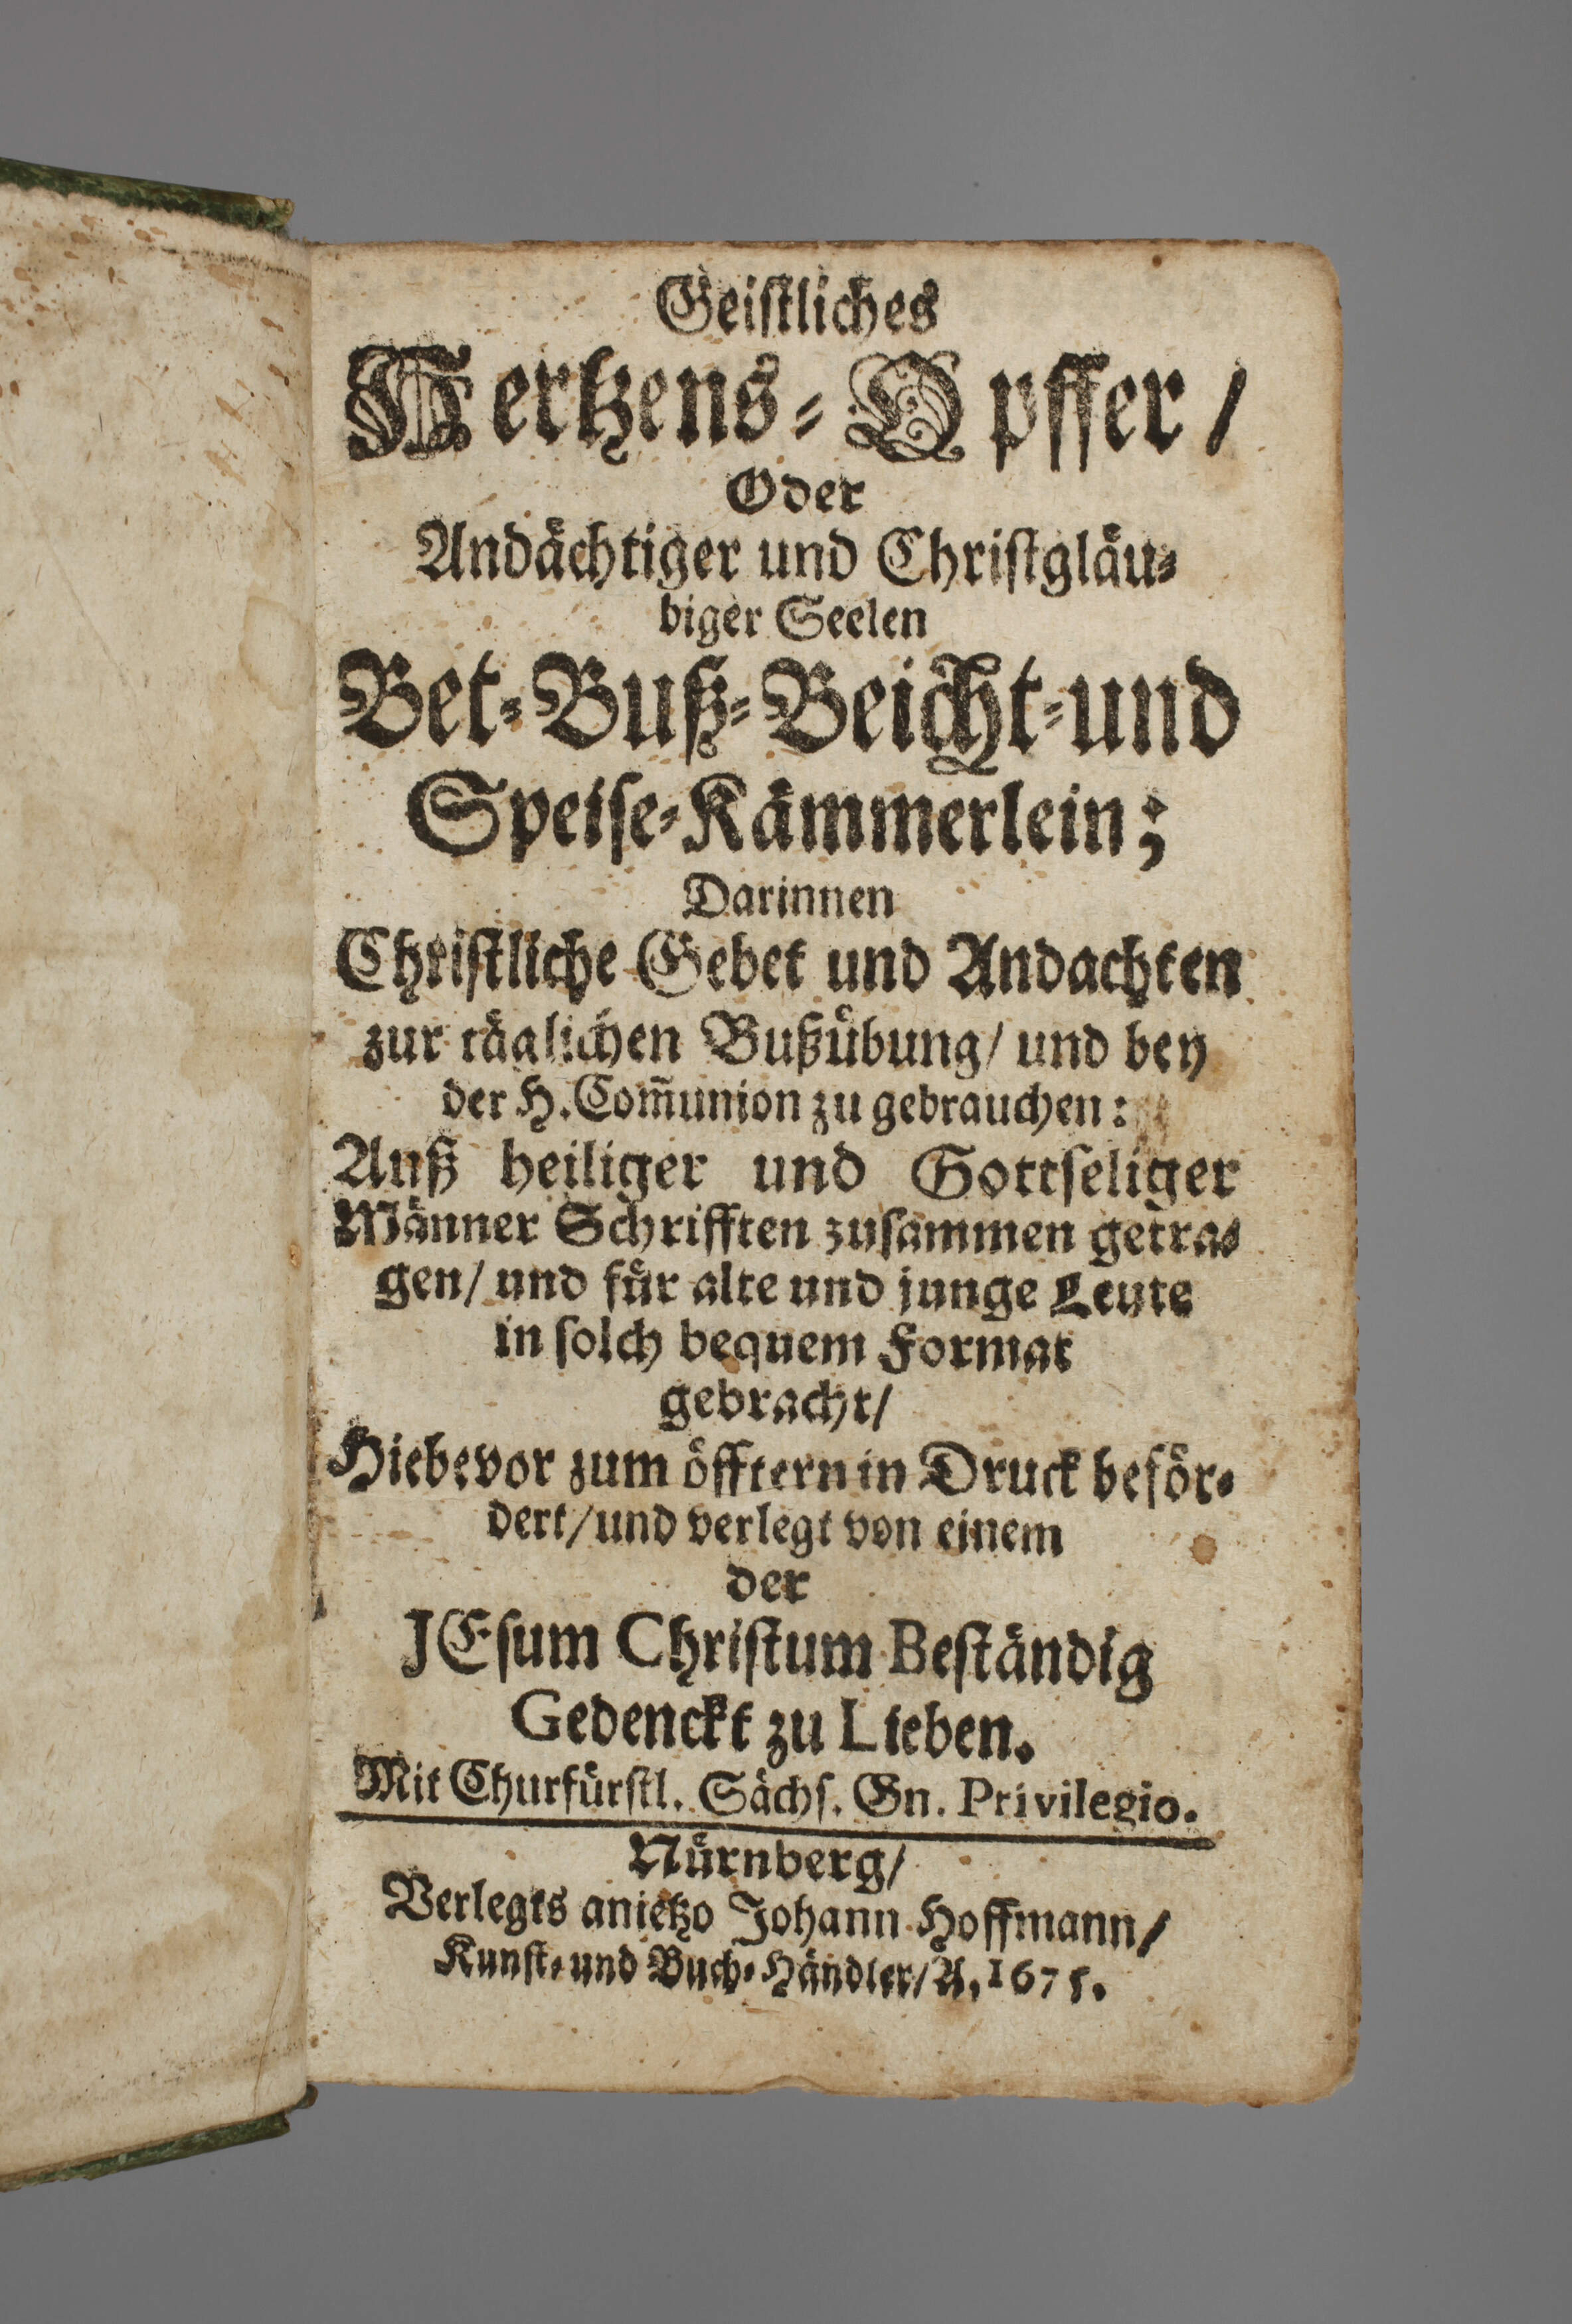 Geistliches
Hertzens-Opffer/
Oder
Andächtiger und Christgläu-
biger Seelen
Bet-Buß-Beicht-und
Speise-Kämmerlein;
Darinnen
Christliche Gebet und Andachten
zur täglichen Bußübung/ und bey
der H. Com̃union zu gebrauchen:
Auß heiliger und Gottseliger
Männer Schrifften zusammen getra-
gen/ und für alte und junge Leute
in solch bequem Format
gebracht/
Hiebevor zum öfftern in Druck beför-
dert/ und verlegt von einem
der
JEsum Christum Beständig
Gedenckt zu Lieben.
Mit Churfürstl. Sächs. Gn. Privilegio.
Nürnberg/
Verlegts anietzo Johann Hoffmann/
Kunst- und Buch-Händler/ A. 1675.